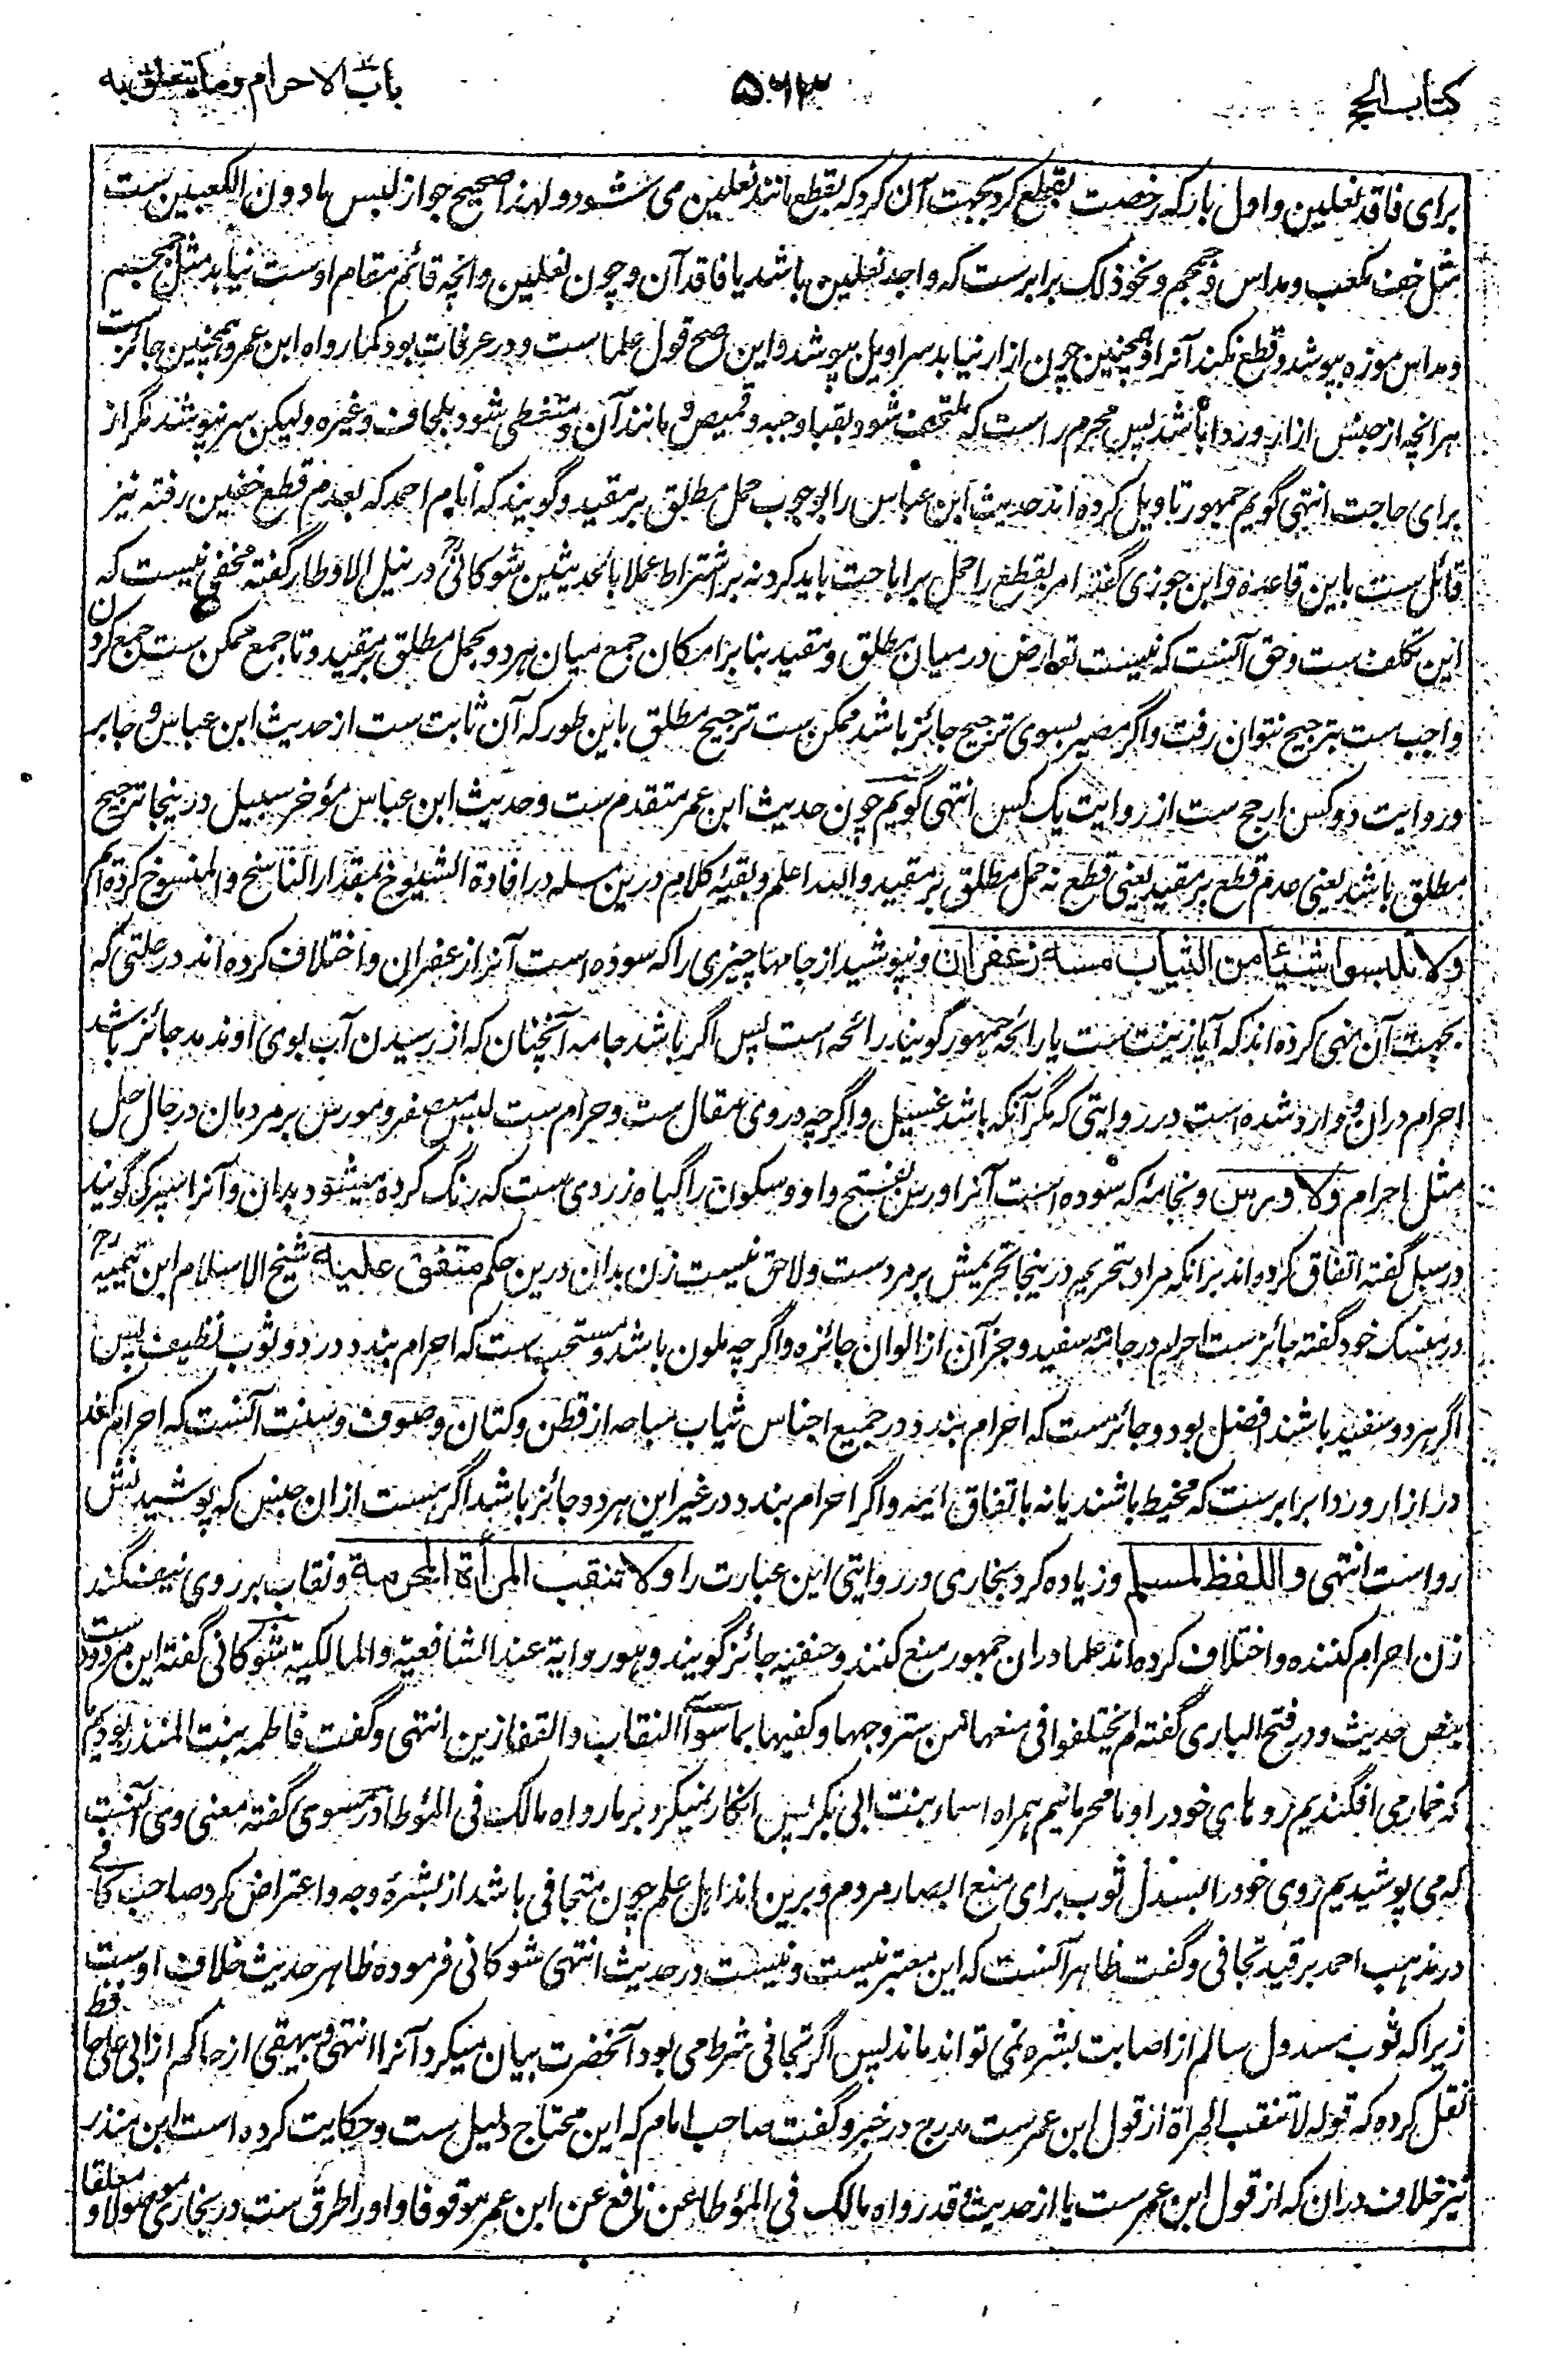 کتاب الحج ۵۶۳ باب الاحرام وما یتعلق به
برای فاقد نعلین و اول بار که رخصت بقطع کرد بجهت آن کرد که بقطع مانند نعلین می شود و لهذا صحیح جواز لبس ما دون الکعبین ست
مثل خف مکعب و مداس و جمجم و نحو ذلک برابرست که واجد نعلین باشد یا فاقد آن و چون نعلین و انچه قائم مقام اوست نیابد مثل جمجم
و مداس موزه بپوشد و قطع نکند آنرا و همچنین چون ازار نیابد سراویل بپوشد و این اصح قول علماست و در عرفات بود کما رواه ابن عمر و همچنین جائزست
هر انچه از جنس ازار و ردا باشد پس محرم راست که ملتحف شود بقبا و جبه و قمیص و مانند آن و متغطی شود بلحاف و غیره ولیکن سر نپوشد مگر از
برای حاجت انتهی گویم جمهور تاویل کرده اند حدیث ابن عباس را بوجوب حمل مطلق بر مقید و گویند که امام احمد که بعدم قطع خفین رفته نیز
قائل ست باین قاعده و ابن جوزی گفته امر بقطع را حمل بر اباحت باید کرد نه بر اشتراط عملا بالحدیثین شوکانی رح در نیل الاوطار گفته مخفی نیست که
این تکلف ست و حق آنست که نیست تعارض در میان مطلق و مقید بنابر امکان جمع میان هر دو بحمل مطلق بر مقید و تا جمع ممکن ست جمع کردن
واجب ست بترجیح نتوان رفت و اگر مصیر بسوی ترجیح جائز باشد ممکن ست ترجیح مطلق باین طور که آن ثابت ست از حدیث ابن عباس و جابر
و روایت دو کس ارجح ست از روایت یک کس انتهی گویم چون حدیث ابن عمر متقدم ست و حدیث ابن عباس مؤخر سبیل درینجا ترجیح
مطلق باشد یعنی عدم قطع بر مقید یعنی قطع نه حمل مطلق بر مقید والله اعلم و بقیهٔ کلام درین مسله در افادة الشیوخ بمقدار الناسخ والمنسوخ کرده ام
ولا تلبسوا شیئا من الثیاب مسه زعفران و نپوشید از جامها چیزی را که سوده است آنرا زعفران و اختلاف کرده اند در علتی که
بجهت آن نهی کرده اند که آیا زینت ست یا رائحه جمهور گویند رائحه است پس اگر باشد جامه آنچنان که از رسیدن آب بوی او ندمد جائز باشد
احرام دران و وارد شده است در روایتی که مگر آنکه باشد غسیل و اگرچه در وی مقال ست و حرام ست لبس معصفر و مورس بر مردمان در حال حل
مثل احرام ولا ورس و نجامه که سوده است آنرا ورس بفتح واو و سکون را گیاه زردی ست که رنگ کرده میشود بدان و آنرا اسپرک گویند
در سبل گفته اتفاق کرده اند برانکه مراد بتحریم درینجا تحریمش بر مردست و لاحق نیست زن بدان درین حکم متفق علیه شیخ الاسلام ابن تیمیه رح
در منسک خود گفته جائزست احرام در جامهٔ سفید و جز آن از الوان جائزه و اگرچه ملون باشد و مستحب ست که احرام بندد در دو ثوب نظیف پس
اگر هر دو سفید باشند افضل بود و جائزست که احرام بندد در جمیع اجناس ثیاب مباحه از قطن و کتان و صوف و سنت آنست که احرام کند
در ازار و ردا برابرست که مخیط باشند یا نه باتفاق ائمه و اگر احرام بندد در غیر این هر دو جائز باشد اگر هست ازان جنس که پوشیدنش
رواست انتهی واللفظ لمسلم و زیاده کرد بخاری در روایتی این عبارت را ولا تنقب المرأة المحرمة و نقاب بر روی نیفگند
زن احرام کننده و اختلاف کرده اند علما دران جمهور منع کنند و حنفیه جائز گویند و هو روایة عند الشافعیة والمالکیة شوکانی گفته این مردودست
بنص حدیث و در فتح الباری گفته لم یختلفوا فی منعها من ستر وجهها و کفیها بما سوا النقاب والقفازین انتهی و گفت فاطمه بنت المنذر بودیم ما
که خمار می افگندیم روهای خود را و ما محرمانیم همراه اسماء بنت ابی بکر پس انکار نمیکرد بر ما رواه مالک فی المؤطا در مسوی گفته معنی وی آنست
که می پوشیدیم روی خود را بسدل ثوب برای منع ابصار مردم و برین اند اهل علم چون متجافی باشد از بشرهٔ وجه و اعتراض کرد صاحب کافی
در مذهب احمد بر قید تجافی و گفت ظاهر آنست که این معتبر نیست و نیست در حدیث انتهی شوکانی فرموده ظاهر حدیث خلاف اوست
زیرا که ثوب مسدول سالم از اصابت بشره نمی تواند ماند پس اگر تجافی شرط می بود آنحضرت بیان میکرد آنرا انتهی و بیهقی از حاکم از ابی علی حافظ
نقل کرده که قوله لا تنقب المرأة از قول ابن عمرست مدرج در خبر و گفت صاحب امام که این محتاج دلیل ست و حکایت کرده است ابن منذر
نیز خلاف دران که از قول ابن عمرست یا از حدیث و قد رواه مالک فی المؤطا عن نافع عن ابن عمر موقوفا و او را طرق ست در بخاری موصولا و معلقا